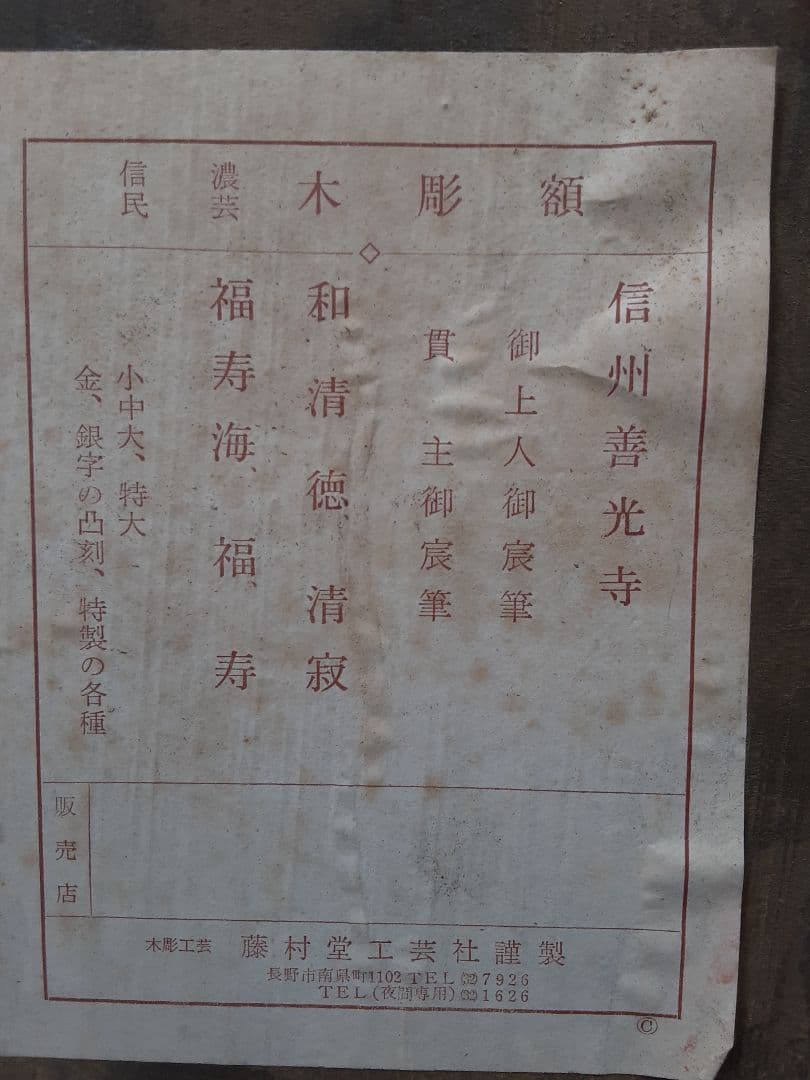 信濃民芸 木彫額
信州善光寺
御上人御宸筆
貫主御宸筆
和、清徳、清寂
福寿海、福、寿
小中大、特大
金、銀字の凸刻、特製の各種
販売店
木彫工芸 藤村堂工芸社謹製
長野市南県町1102 TEL㉜7926
TEL(夜間専用)㉜1626
©